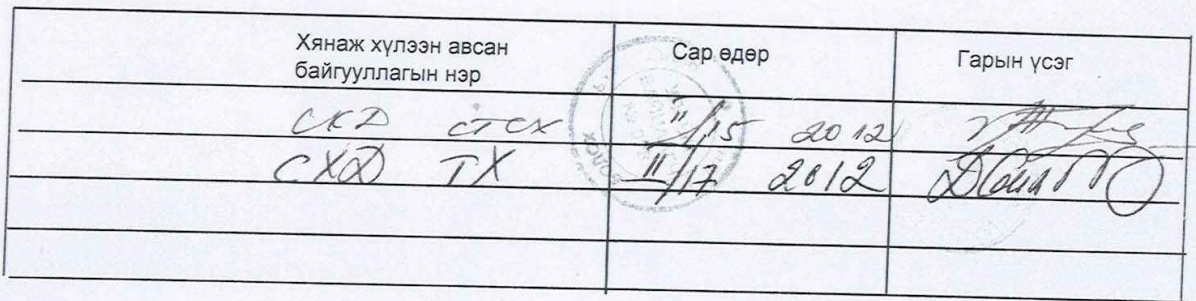 Хянаж хүлээн авсан байгууллагын нэр
Сар өдөр
Гарын үсэг
СХД СТСХ II/15 2012
СХД ТХ II/17 2012